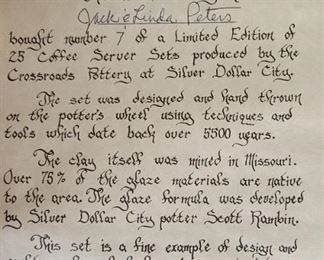 Jack & Linda Peters
bought number 7 of a Limited Edition of
25 Coffee Server Sets produced by the
Crossroads Pottery at Silver Dollar City.
The set was designed and hand thrown
on the potter's wheel using techniques and
tools which date back over 5500 years.
The clay itself was mined in Missouri.
Over 75% of the glaze materials are native
to the area. The glaze formula was developed
by Silver Dollar City potter Scott Rambin.
This set is a fine example of design and